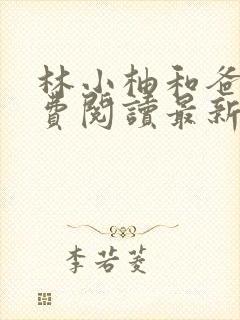 林小柚和爸
費閱讀最新
李若菱